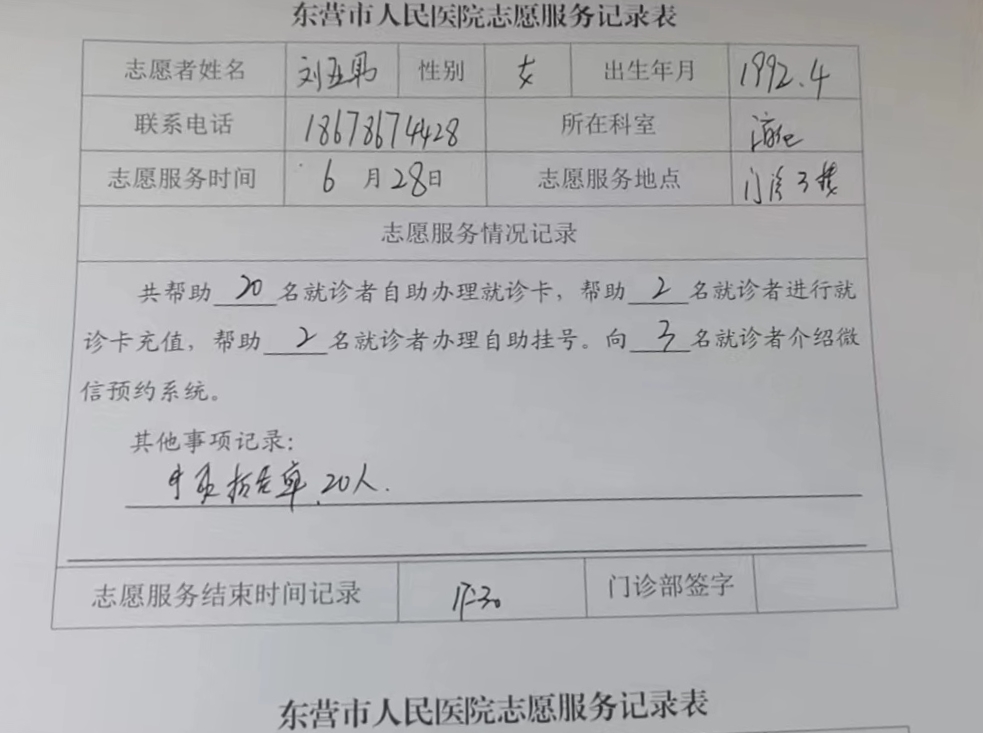 东营市人民医院志愿服务记录表
志愿者姓名 刘亚男 性别 女 出生年月 1992.4
联系电话 18678674428 所在科室 消化
志愿服务时间 6月28日 志愿服务地点 门诊3楼
志愿服务情况记录
共帮助20名就诊者自助办理就诊卡，帮助2名就诊者进行就
诊卡充值，帮助2名就诊者办理自助挂号。向3名就诊者介绍微
信预约系统。
其他事项记录：
报告单 20人.
志愿服务结束时间记录 17:30 门诊部签字
东营市人民医院志愿服务记录表